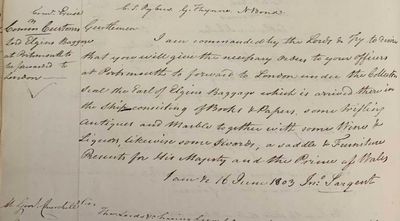 C. S. Bybed G. Thynne N. Bond
Gentlemen
Comm Customs
Lord Elgins Baggage
at Portsmouth to
be forwarded to
London
I am commanded by the Lords &c Try to desire
that you will give the necessary orders to your officers
at Portsmouth to forward to London under the Collectors
Seal the Earl of Elgins Baggage which is arrived there in
the Ship consisting of Books & Papers, some trifling
Antiques and Marble together with some Wine &
Liquors, likewise some Swords, a saddle & Furniture
Presents for His Majesty and the Prince of Wales
I am &c 16 June 1803 Jno. Sargent